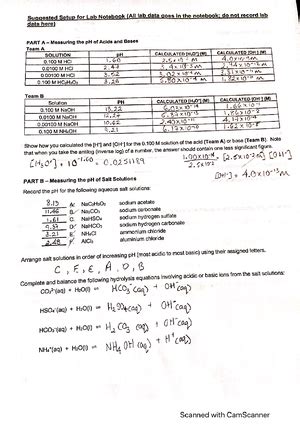 Suggested Setup for Lab Notebook (All lab data goes in the notebook; do not record lab
data here)
PART A – Measuring the pH of Acids and Bases
Team A
SOLUTION pH CALCULATED [H3O+] (M) CALCULATED [OH-] (M)
0.100 M HCl 1.60
0.0100 M HCl
0.00100 M HCl 3.52
0.100 M HC2H3O2
Team B
Solution pH CALCULATED [H3O+] (M) CALCULATED [OH-] (M)
0.100 M NaOH 13.22
0.0100 M NaOH 12.24
0.00100 M NaOH 10.62
0.100 M NH4OH 9.21
Show how you calculated the [H+] and [OH-] for the 0.100 M solution of the acid (Team A) or base (Team B). Note
that when you take the antilog (inverse log) of a number, the answer should contain one less significant figure.
[H3O+] = 10^-1.60 = 0.0251189
[OH-] = 4.0×10^-13 M
PART B – Measuring the pH of Salt Solutions
Record the pH for the following aqueous salt solutions:
8.13 A: NaC2H3O2 sodium acetate
11.46 B: Na2CO3 sodium carbonate
1.61 C: NaHSO4 sodium hydrogen sulfate
D: NaHCO3 sodium hydrogen carbonate
3.21 E: NH4Cl ammonium chloride
2.48 F: AlCl3 aluminium chloride
Arrange salt solutions in order of increasing pH [most acidic to most basic] using their assigned letters.
C, F, E, A, D, B
Complete and balance the following hydrolysis equations involving acidic or basic ions from the salt solutions:
CO3²-(aq) + H2O(l) ⇌ HCO3-(aq) + OH-(aq)
HSO4-(aq) + H2O(l) ⇌ H2SO4(aq) + OH-(aq)
HCO3-(aq) + H2O(l) ⇌ H2CO3 (aq) + OH-(aq)
NH4+(aq) + H2O(l) ⇌ NH4OH(aq) + H+(aq)
Scanned with CamScanner